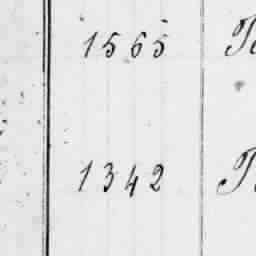 1565
1342